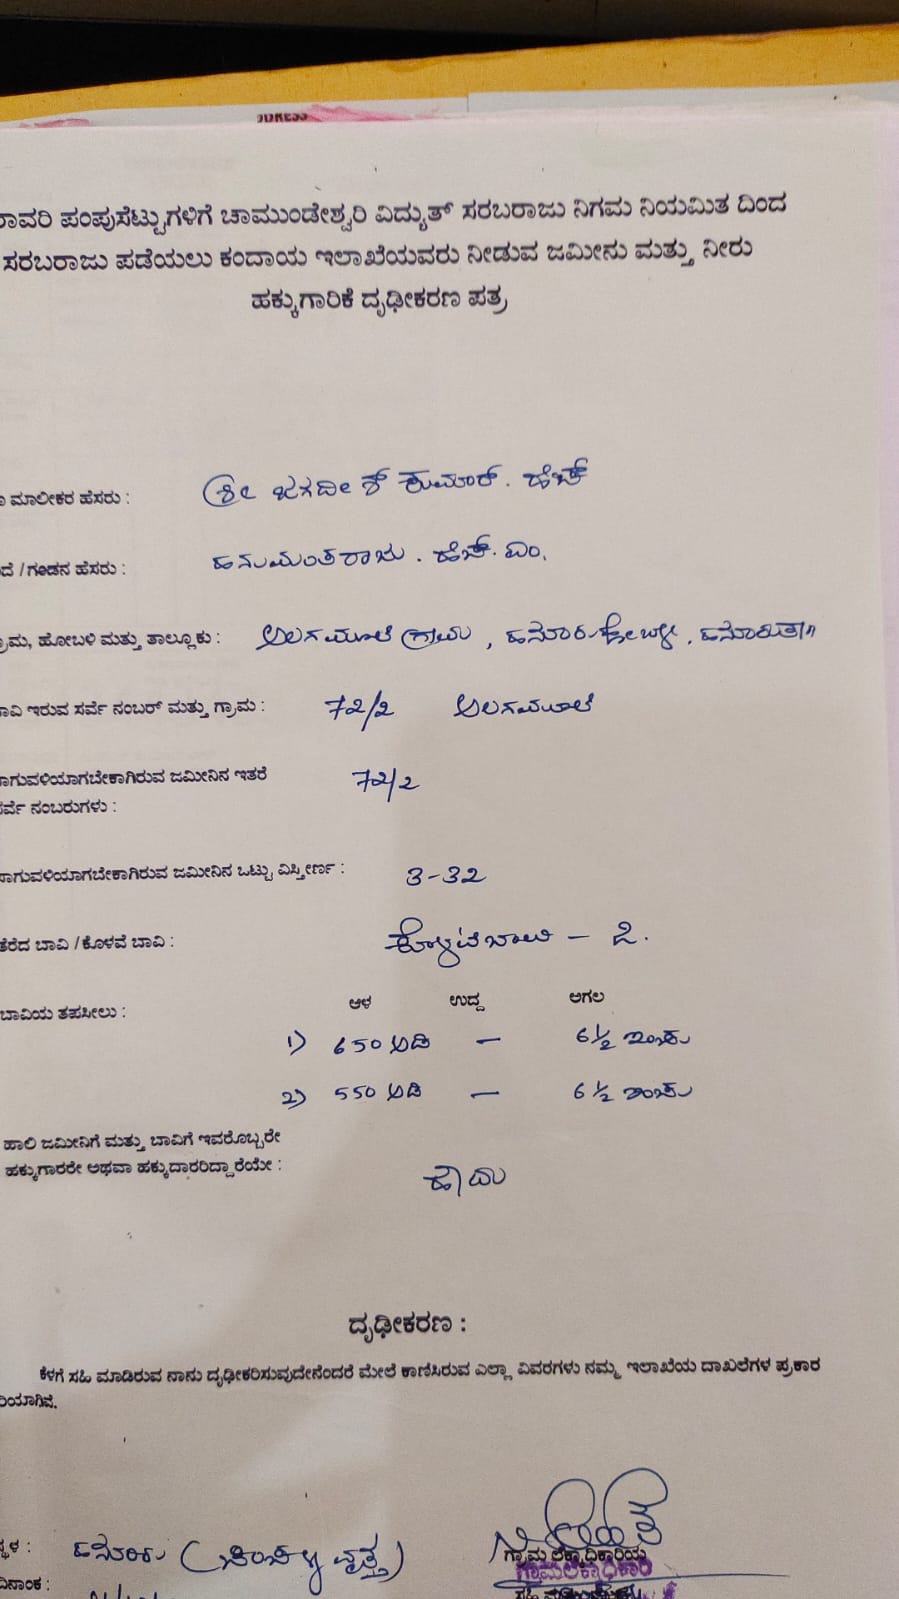 ADDRESS
ರಾವರಿ ಪಂಪುಸೆಟ್ಟುಗಳಿಗೆ ಚಾಮುಂಡೇಶ್ವರಿ ವಿದ್ಯುತ್ ಸರಬರಾಜು ನಿಗಮ ನಿಯಮಿತ ದಿಂದ
ಸರಬರಾಜು ಪಡೆಯಲು ಕಂದಾಯ ಇಲಾಖೆಯವರು ನೀಡುವ ಜಮೀನು ಮತ್ತು ನೀರು
ಹಕ್ಕುಗಾರಿಕೆ ದೃಢೀಕರಣ ಪತ್ರ
ಮಾಲೀಕರ ಹೆಸರು : ಶ್ರೀ ಜಗದೀಶ್ ಕುಮಾರ್. ಹೆಚ್
ದೆ /ಗಂಡನ ಹೆಸರು : ಹನುಮಂತರಾಜು . ಹೆಚ್. ಎಂ.
ರಾಮ, ಹೋಬಳಿ ಮತ್ತು ತಾಲ್ಲೂಕು : ಅಲಗಮೂಲೆ ಗ್ರಾಮ , ಹನೂರು ಹೋಬಳಿ , ಹನೂರು ತಾ॥
ಾವಿ ಇರುವ ಸರ್ವೆ ನಂಬರ್ ಮತ್ತು ಗ್ರಾಮ : 72/2 ಅಲಗಮೂಲೆ
ಾಗುವಳಿಯಾಗಬೇಕಾಗಿರುವ ಜಮೀನಿನ ಇತರೆ 72/2
ರ್ವೆ ನಂಬರುಗಳು :
ಾಗುವಳಿಯಾಗಬೇಕಾಗಿರುವ ಜಮೀನಿನ ಒಟ್ಟು ವಿಸ್ತೀರ್ಣ : 3-32
ತೆರೆದ ಬಾವಿ /ಕೊಳವೆ ಬಾವಿ : ಕೊಳವೆ ಬಾವಿ – 2.
ಬಾವಿಯ ತಪಸೀಲು : ಆಳ ಉದ್ದ ಅಗಲ
1) 650 ಅಡಿ – 6½ ಇಂಚು
2) 550 ಅಡಿ – 6½ ಇಂಚು
ಹಾಲಿ ಜಮೀನಿಗೆ ಮತ್ತು ಬಾವಿಗೆ ಇವರೊಬ್ಬರೇ
ಹಕ್ಕುಗಾರರೇ ಅಥವಾ ಹಕ್ಕುದಾರರಿದ್ದಾರೆಯೇ : ಹೌದು
ದೃಢೀಕರಣ :
ಕೆಳಗೆ ಸಹಿ ಮಾಡಿರುವ ನಾನು ದೃಢೀಕರಿಸುವುದೇನೆಂದರೆ ಮೇಲೆ ಕಾಣಿಸಿರುವ ಎಲ್ಲಾ ವಿವರಗಳು ನಮ್ಮ ಇಲಾಖೆಯ ದಾಖಲೆಗಳ ಪ್ರಕಾರ
ರಿಯಾಗಿವೆ.
ಸ್ಥಳ : ಹನೂರು ( ವೃತ್ತ )
ಗ್ರಾಮ ಲೆಕ್ಕಾಧಿಕಾರಿಯ
ಗ್ರಾಮಲೆಕ್ಕಾಧಿಕಾರಿ
ದಿನಾಂಕ :